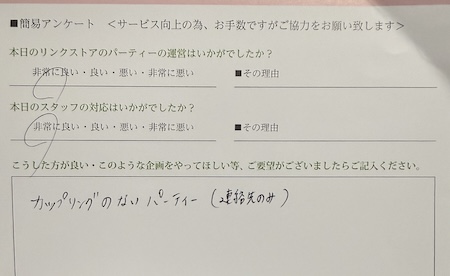 ■簡易アンケート　＜サービス向上の為、お手数ですがご協力をお願い致します＞
本日のリンクストアのパーティーの運営はいかがでしたか？
非常に良い・良い・悪い・非常に悪い　■その理由
本日のスタッフの対応はいかがでしたか？
非常に良い・良い・悪い・非常に悪い　■その理由
こうした方が良い・このような企画をやってほしい等、ご要望がございましたらご記入ください。
カップリングのないパーティー（連絡先のみ）